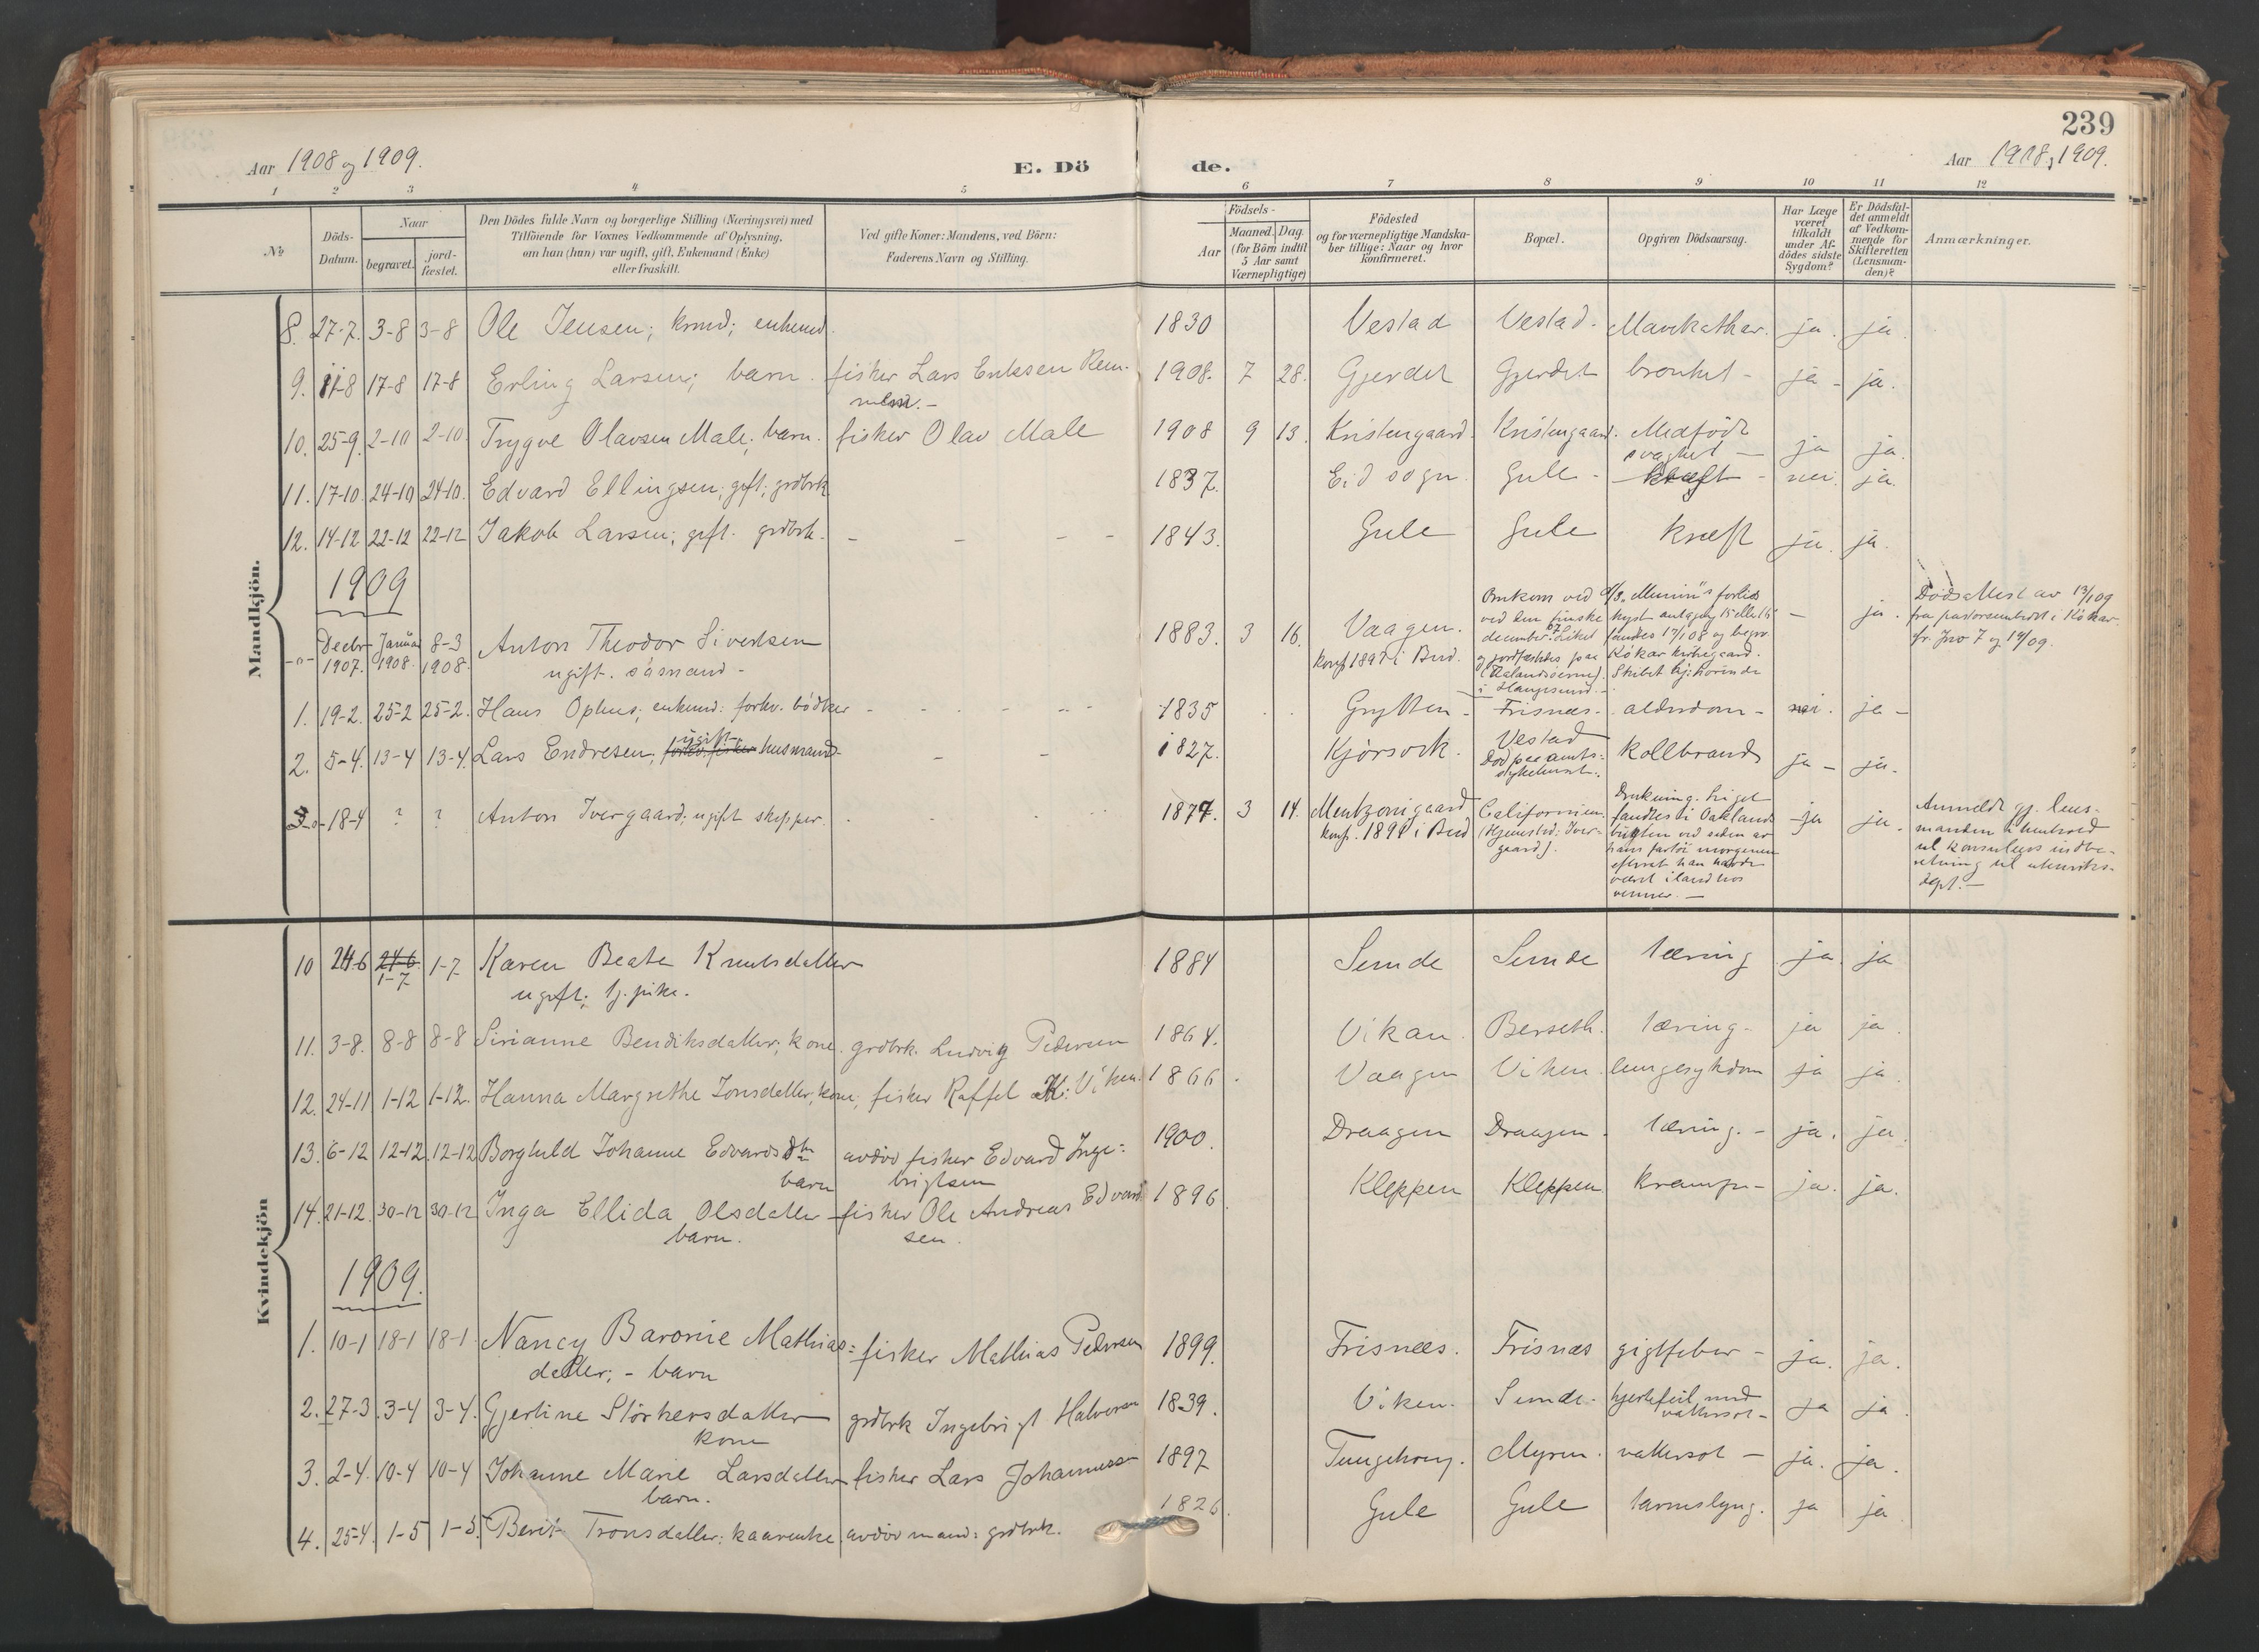 239
Aar 1908 og 1909.
E. Dö
de.
Aar 1908 og 1909.
1 2 3 4 5 6 7 8 9 10 11 12
No
Döds-
Datum.
Naar
begravet.
jord-
fæstet.
Den Dödes fulde Navn og borgerlige Stilling (Næringsvei) med
Tilföiende for Voxnes Vedkommende af Oplysning,
om han (hun) var ugift, gift, Enkemand (Enke)
eller fraskilt.
Ved gifte Koner: Mandens, ved Börn:
Faderens Navn og Stilling.
Födsels-
Aar
Maaned.
Dag.
(for Börn indtil
5 Aar samt
Værnepligtige)
Födested
og for værnepligtige Mandska-
ber tillige: Naar og hvor
konfirmeret.
Bopæl.
Opgiven Dödsaarsag.
Har Læge
været
tilkaldt
under Af-
dödes sidste
Sygdom?
Er Dödsfal-
det anmeldt
af Vedkom-
mende for
Skifteretten
(Lensman-
den)?
Anmærkninger.
Mandkjön.
8. 27-7. 3-8 3-8 Ole Jensen; enkemd. 1830 Vestad Vestad. Mavekathar. ja. ja.
9. 11-8 17-8 17-8 Erling Larsen; barn. fisker Lars Eriksen Rem- 1908. 7 28. Gjerdet Gjerdet bronkit - ja - ja.
10. 25-9. 2-10 2-10. Trygve Olavsen Male; barn. fisker Olav Male 1908 9 13. Kristengaard. Kristengaard. Medfödt
svaghet - ja ja.
11. 17-10. 24-10 24-10. Edvard Ellingsen; gift; grdbrk 1837. Eid sogn. Gule - kræft - nei. ja.
12. 14-12 22-12 22-12 Jakob Larsen; gift. grdbrk. - - - - 1843. Gule Gule kræft ja. ja.
1909
-"- Decbr 1907. Januar 1908. 8-3 1908. Anton Theodor Sivertsen
ugift. sjömand -
1883. 3 16. Vaagen.
konf. 1897 i Bud.
Omkom ved D/S "Munin"s forlis
ved den finske kyst antagelig 15 eller 16
december 07. Liket fandtes 17/1 08 og begro
og jordfæstedes paa Kökar kirkegaard.
(Aalandsöerne). Skibet hjemhörende
i Haugesund. -
- ja.
Dödsattest av 13/1 09
fra pastorembedet i Kökar.
fr. Jno 7 og 19/09.
1. 19-2. 25-2 25-2. Hans Ophus; enkemd: forhv. bödker - - - - - 1835 Grytten - Frisnæs - alderdom - nei. ja -
2. 5-4. 13-4 13-4. Lars Endresen; ugift husmand - - - 1827. Kjörsvik. Vestad
Död paa amts-
sykehuset. Koldbrand ja - ja.
3 18-4 ? ? Anton Ivergaard; ugift skipper. - - - 1874. 3 14. Mentzonigaard
konf. 1891 i Bud
Californien.
(Hjemsted: Iver-
gaard).
Drukning. Liget
fandtes i Oakland
bugten ved siden av
hans fartöi morgenen
efterat han havde
været i land hos
venner. -
-ja ja.
Anmeldt gj. lens-
manden i henhold
til konsulens indbe-
retning til utenriks-
dept. -
Kvindekjön
10 24-6 24-6 1-7 1-7 Karen Beate Knutsdatter
ugift; tj. pike.
1884 Sunde Sunde tæring ja. ja
11. 3-8. 8-8 8-8 Sirianne Bendiksdatter; kone. grdbrk. Ludvig Pedersen 1864. Vikan. Berseth. tæring - ja ja.
12. 24-11 1-12 1-12. Hanna Margrethe Jonsdatter; kone; fisker Raffel K. Viken. 1866. Vaagen Viken. lungesykdom ja ja.
13. 6-12 12-12. 12-12 Borghild Johanne Edvardsdtr avdöd fisker Edvard Inge- 1900. Draagen Draagen. tæring. - ja. ja.
barn brigtsen
14. 21-12. 30-12 30-12 Inga Ellida Olsdatter - fisker Ole Andreas Edvard 1896. Kleppen Kleppen. krampe - ja. ja.
barn. sen.
1909.
1. 10-1 18-1 18-1. Nancy Baronie Mathias= fisker Mathias Pedersen 1899. Frisnæs. Frisnæs gigtfeber - ja. ja.
datter; - barn
2. 27-3. 3-4 3-4. Gjertine Störkersdatter grdbrk Ingebrigt Halvorsen 1839. Viken. Sunde. hjertefeil med
vattersot - ja ja.
kone
3. 2-4. 10-4 10-4 Johanne Marie Larsdatter fisker Lars Johannessen 1897 Tungehaug. Myren. vattersot - ja. ja.
barn.
4. 25-4. 1-5 1-5. Berit Tronsdatter; kaarenke. avdöd mand: grdbrk. 1826. Gule Gule tarmslyng. ja ja